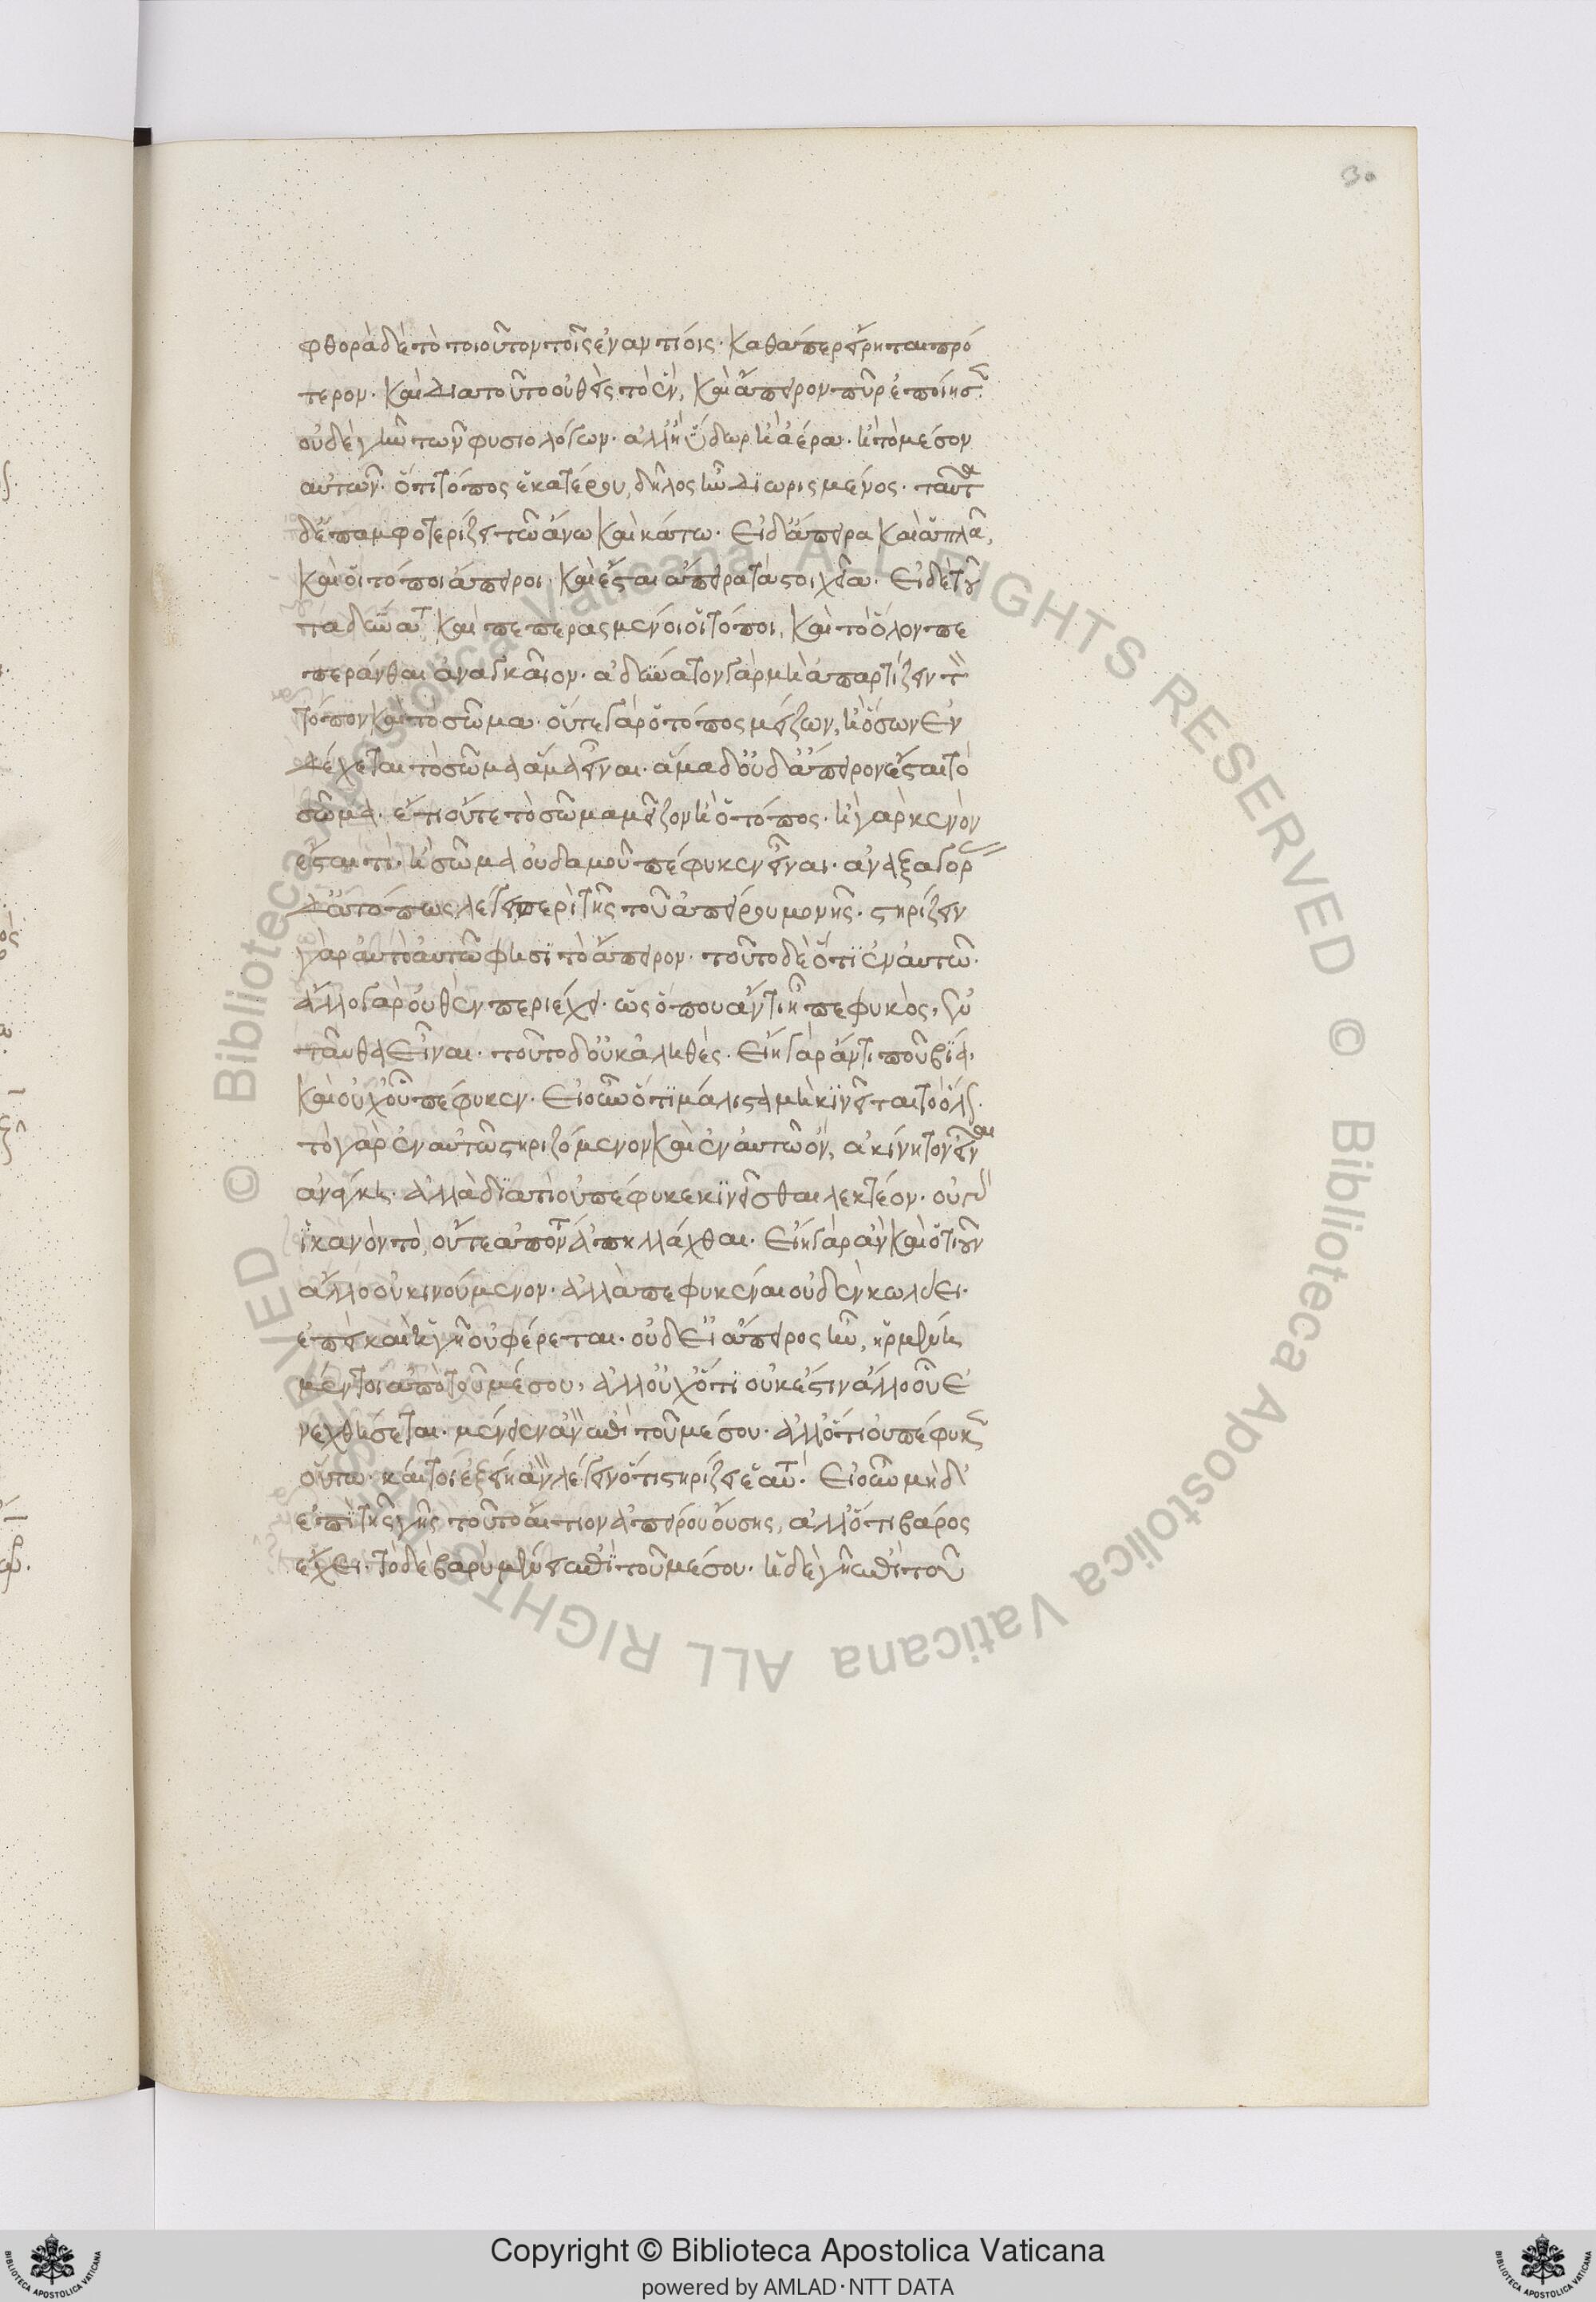 30
φθορὰ δὲ τὸ τοιοῦτον τοῖς ἐναντίοις· καθάπερ εἴρηται πρό
τερον· καὶ διατοῦτο οὐθεὶς τὸ ἓν, καὶ ἄπειρον πῦρ ἐποίησ
οὐδὲ γῆν τῶν φυσιολόγων· ἀλλ' ἢ ὕδωρ ἢ ἀέρα· ἢ τὸ μέσον
αὐτῶν· ὅτι τόπος ἑκατέρου, δῆλος ἦν διωρισμένος· ταῦτα
δ' ἐπαμφοτερίζει τῶ ἄνω καὶ κάτω· Εἰ δ' ἄπειρα καὶ ἁπλᾶ,
καὶ οἱ τόποι ἄπειροι· καὶ ἔσται ἄπειρα τὰ στοιχεῖα· Εἰ δὲ τοῦ
τ' ἀδύνατ καὶ πεπερασμένοι οἱ τόποι, καὶ τὸ ὅλον πε
περάνθαι ἀναγκαῖον· ἀδύνατον γὰρ μὴ ἀπαρτίζειν τὸν
τόπον καὶ τὸ σῶμα· οὔτε γὰρ ὁ τόπος μείζων, ἢ ὅσων ἐν
δέχεται τὸ σῶμα ἅμα εἶναι· ἅμα δ' οὐδ' ἄπειρον ἔσται τὸ
σῶμα· ἔτι οὔτε τὸ σῶμα μεῖζον ἢ ὁ τόπος· ἢ γὰρ κενὸν
ἔσται τι· ἢ σῶμα οὐδαμοῦ πέφυκεν εἶναι· ἀναξαγόρ
δ' ἀτόπως λέγει περὶ τῆς τοῦ ἀπείρου μονῆς· στηρίζειν
γὰρ αὐτὸ αὑτῶ φησὶ τὸ ἄπειρον· τοῦτο δὲ ὅτι ἐν αὑτῶ·
ἄλλο γὰρ οὐθὲν περιέχει· ὡς ὅπου ἄν τι ἦ πεφυκὸς, ἐν
ταῦθα εἶναι· τοῦτο δ' οὐκ ἀληθὲς· Εἴη γὰρ ἄν τι που βία,
καὶ οὐχ' οὗ πέφυκεν· Εἰ οὖν ὅτι μάλιστα μὴ κινεῖται τὸ ὅλον·
τὸ γὰρ ἐν αὑτῶ στηριζόμενον καὶ ἐν αὑτῶ ὂν, ἀκίνητον εἶναι
ἀνάγκη· ἀλλὰ διατί οὐ πέφυκε κινεῖσθαι λεκτέον· οὐ γὰρ
ἱκανὸν τὸ, οὕτε ἀπόντα ἀπηλλάχθαι· Εἴη γὰρ ἂν καὶ ὁτιοῦν
ἄλλο οὐ κινούμενον· ἀλλὰ πεφυκέναι οὐδὲν κωλύει·
ἐπεὶ καὶ ἡ γῆ οὐ φέρεται· οὐδ' εἰ ἄπειρος ἦν, εἰργμένη
μέντοι ἀπὸ τοῦ μέσου, ἀλλ' οὐχ' ὅτι οὐκ ἔστιν ἄλλο οὗ ἐ
νεχθήσεται· μένειεν ἂν ἐπὶ τοῦ μέσου· ἀλλ' ὅτι οὐ πέφυκ
οὕτω· καίτοι ἐξείη ἂν λέγειν ὅτι στηρίζει ἑαυτ· Εἰ οὖν μηδ'
ἐπὶ τῆς γῆς τοῦτο αἴτιον ἀπείρου οὔσης, ἀλλ' ὅτι βάρος
ἔχει· τὸ δὲ βαρὺ μένει ἐπὶ τοῦ μέσου· ἡ δὲ γῆ ἐπὶ τοῦ
© Biblioteca Apostolica Vaticana ALL RIGHTS RESERVED © Biblioteca Apostolica Vaticana ALL RIGHTS RESERVED
Copyright © Biblioteca Apostolica Vaticana
powered by AMLAD·NTT DATA